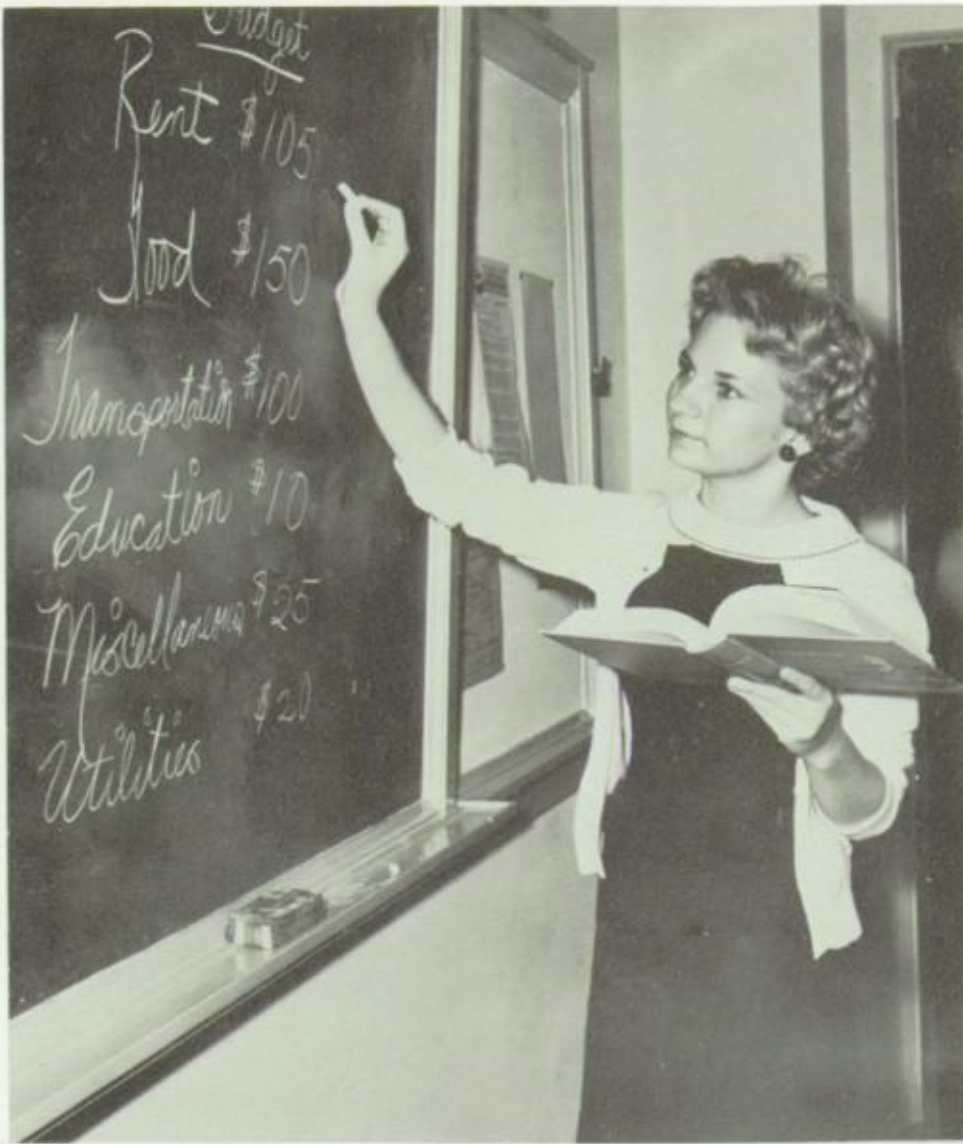 Budget
Rent $105
Food $150
Transportation $100
Education $10
Miscellaneous $25
Utilities $20